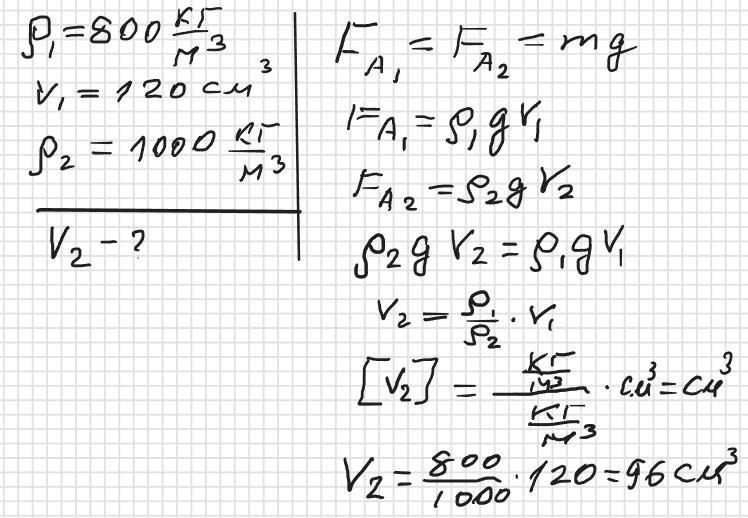 ρ₁ = 800 кг/м³
V₁ = 120 см³
ρ₂ = 1000 кг/м³
V₂ - ?
F_A₁ = F_A₂ = mg
F_A₁ = ρ₁gV₁
F_A₂ = ρ₂gV₂
ρ₂gV₂ = ρ₁gV₁
V₂ = ρ₁/ρ₂ · V₁
[V₂] = (кг/м³)/(кг/м³) · см³ = см³
V₂ = 800/1000 · 120 = 96 см³